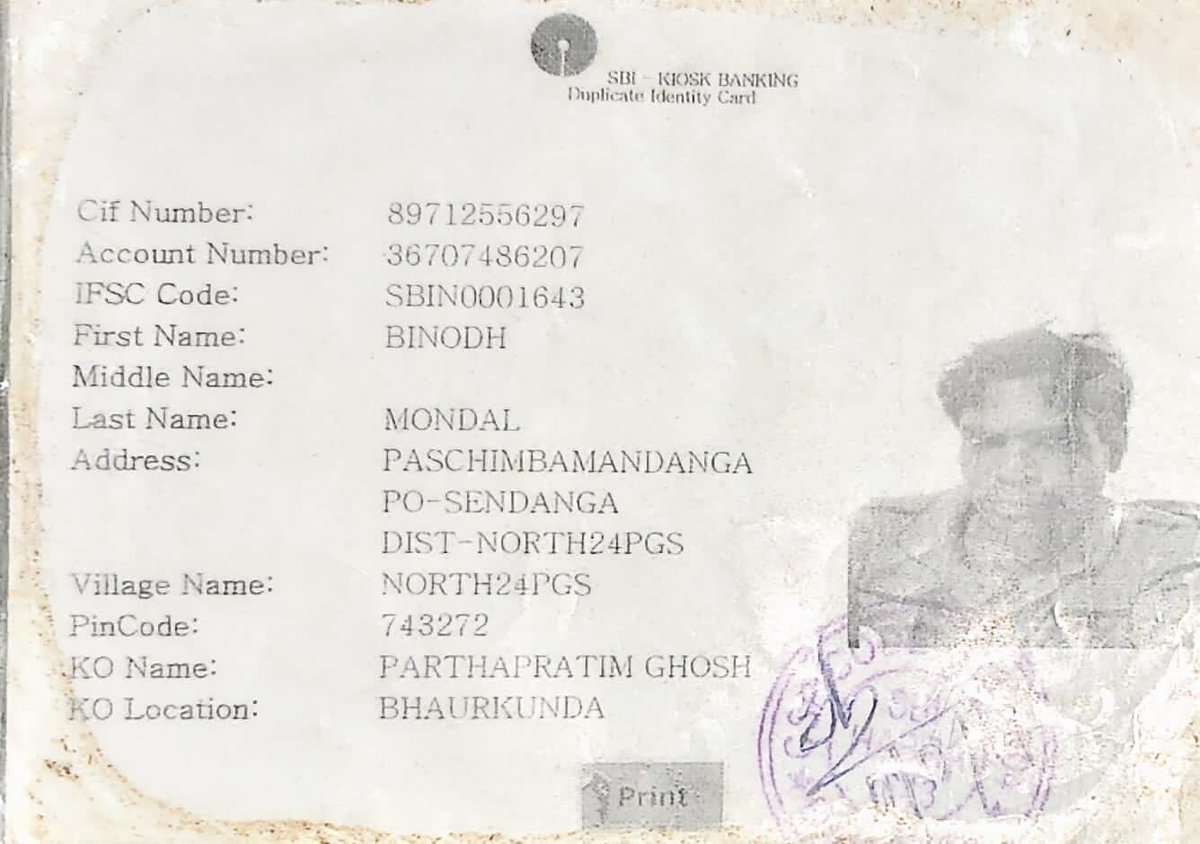 SBI - KIOSK BANKING
Duplicate Identity Card
Cif Number: 89712556297
Account Number: 36707486207
IFSC Code: SBIN0001643
First Name: BINODH
Middle Name:
Last Name: MONDAL
Address: PASCHIMBAMANDANGA
PO-SENDANGA
DIST-NORTH24PGS
Village Name: NORTH24PGS
PinCode: 743272
KO Name: PARTHAPRATIM GHOSH
KO Location: BHAURKUNDA
Print